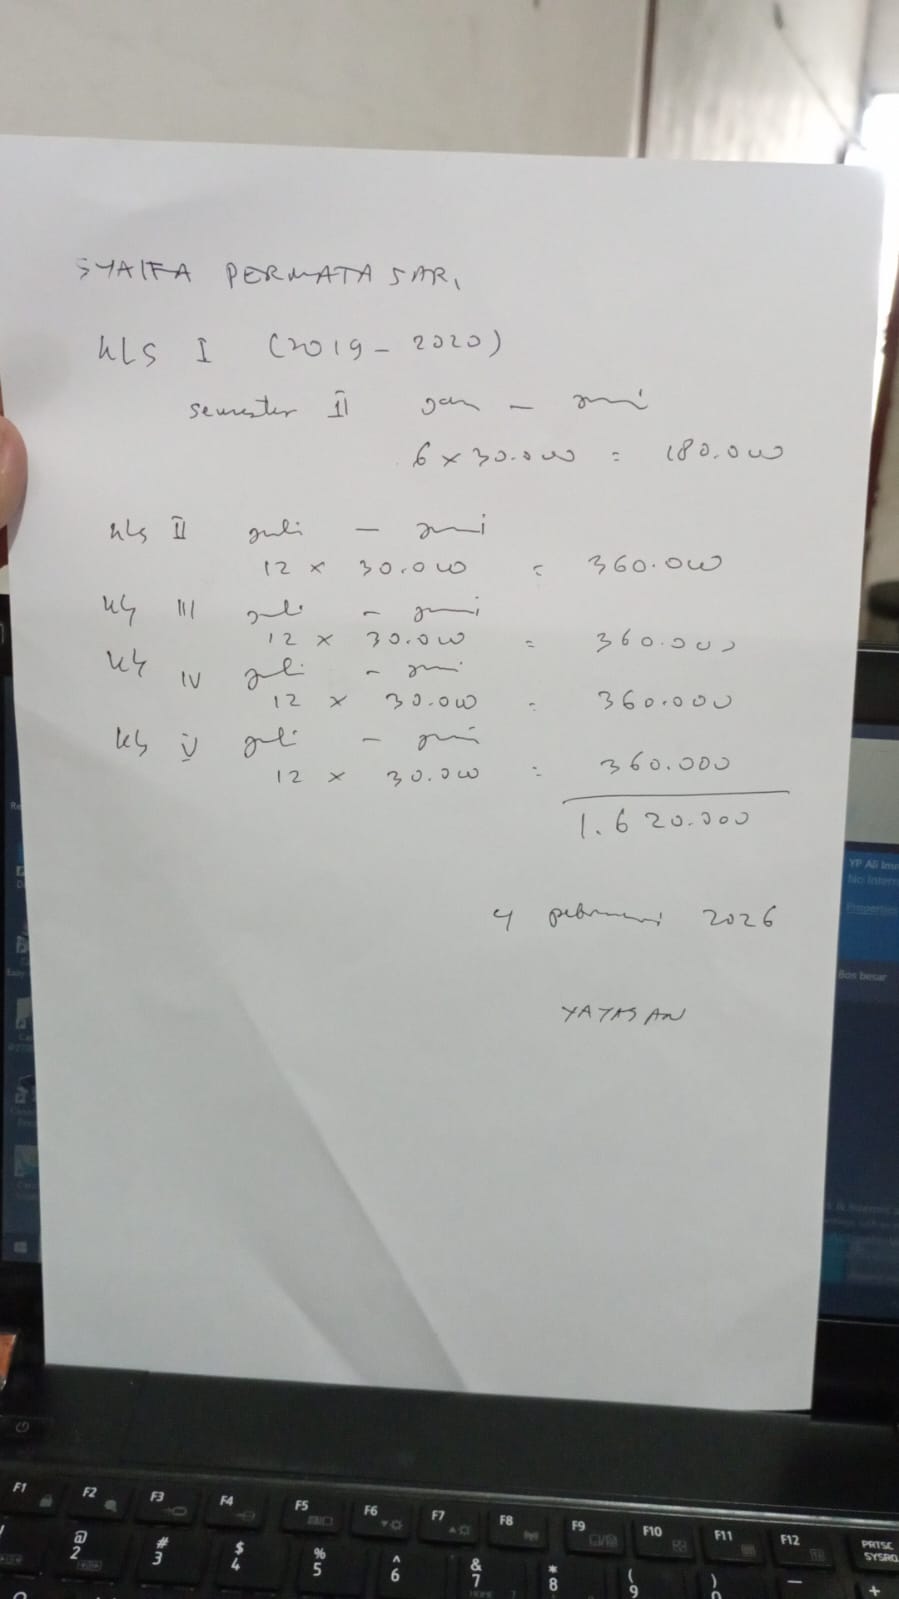 SYAIFA PERMATA SARI
KLS I (2019 - 2020)
semester II jan - juni
6 x 30.000 = 180.000
kls II juli - juni
12 x 30.000 = 360.000
kls III juli - juni
12 x 30.000 = 360.000
kls IV juli - juni
12 x 30.000 = 360.000
kls V juli - juni
12 x 30.000 = 360.000
1.620.000
4 pebruari 2026
YAYASAN
YP Ali Ims
No Intern
Properties
Bos besar
F1 F2 F3 F4 F5 F6 F7 F8 F9 F10 F11 F12 PRTSC
SYSRQ
@ # $ % ^ & * ( ) +
2 3 4 5 6 7 8 9